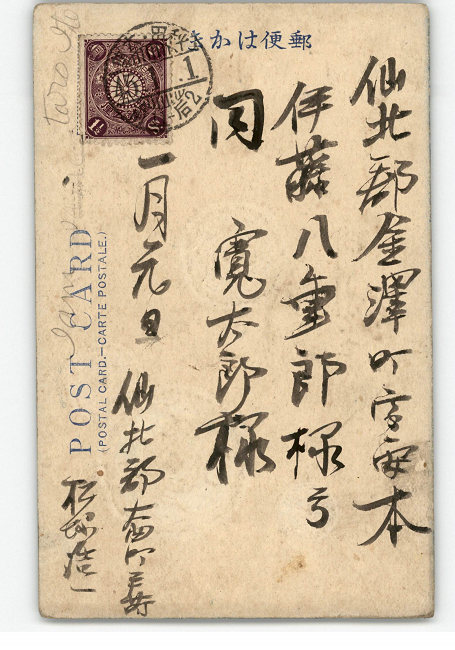 郵便はかき
仙北郡金澤町字安本
伊藤八重郎様方
同 寛太郎様
一月元旦
仙北郡
浩一
POST CARD
(POSTAL CARD.—CARTE POSTALE.)
Taro Ito